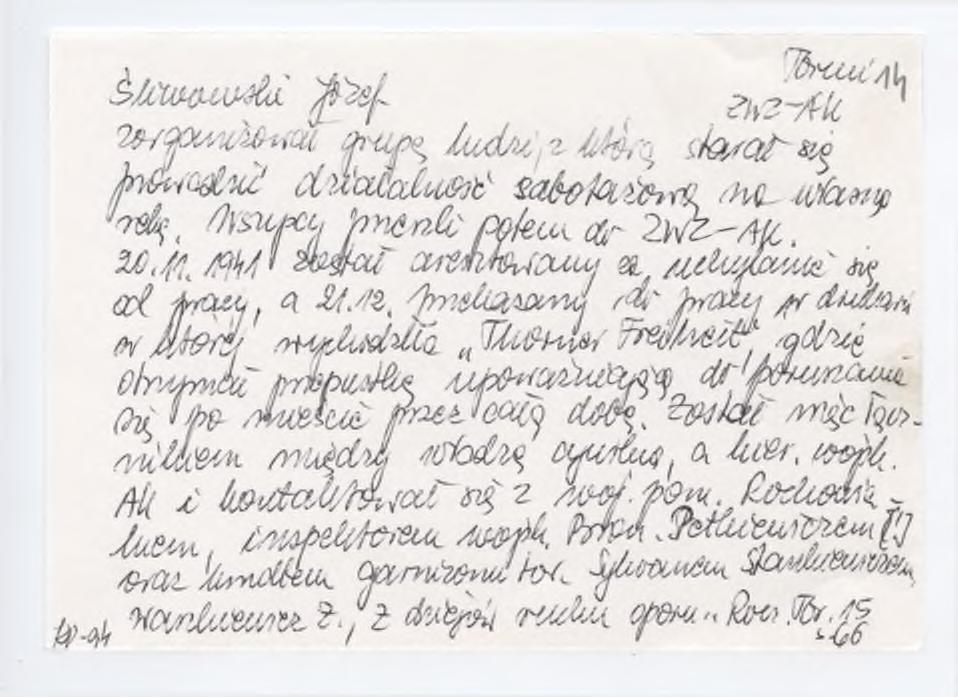 Toruń 14
Śliwowski Józef
ZWZ-AK
zorganizował grupę ludzi, z którą starał się
prowadzić działalność sabotażową na własną
rękę. Wszyscy weszli potem do ZWZ-AK.
20.11.1941 został aresztowany za uchylanie się
od pracy, a 21.12. przekazany do pracy w drukarni
w której wychodziła „Thorner Freiheit”, gdzie
otrzymał przepustkę upoważniającą do poruszania
się po mieście przez całą dobę. Został więc łącz-
nikiem między władzą cywilną, a kier. wojsk.
AK i kontaktował się z woj. pom.
inspektorem wojsk. Bron. Pietkiewiczem [!]
oraz kmdtem garnizonu tor. Sylwanem Stankiewiczem
Waszkiewicz Z., Z dziejów ruchu oporu.. Rocz. Tor. 15
s. 66